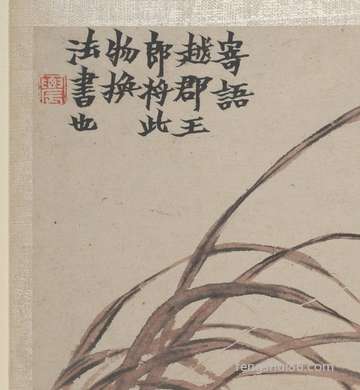 寄語
越郡王
郎将此
物換
法書也
fengshui86.com